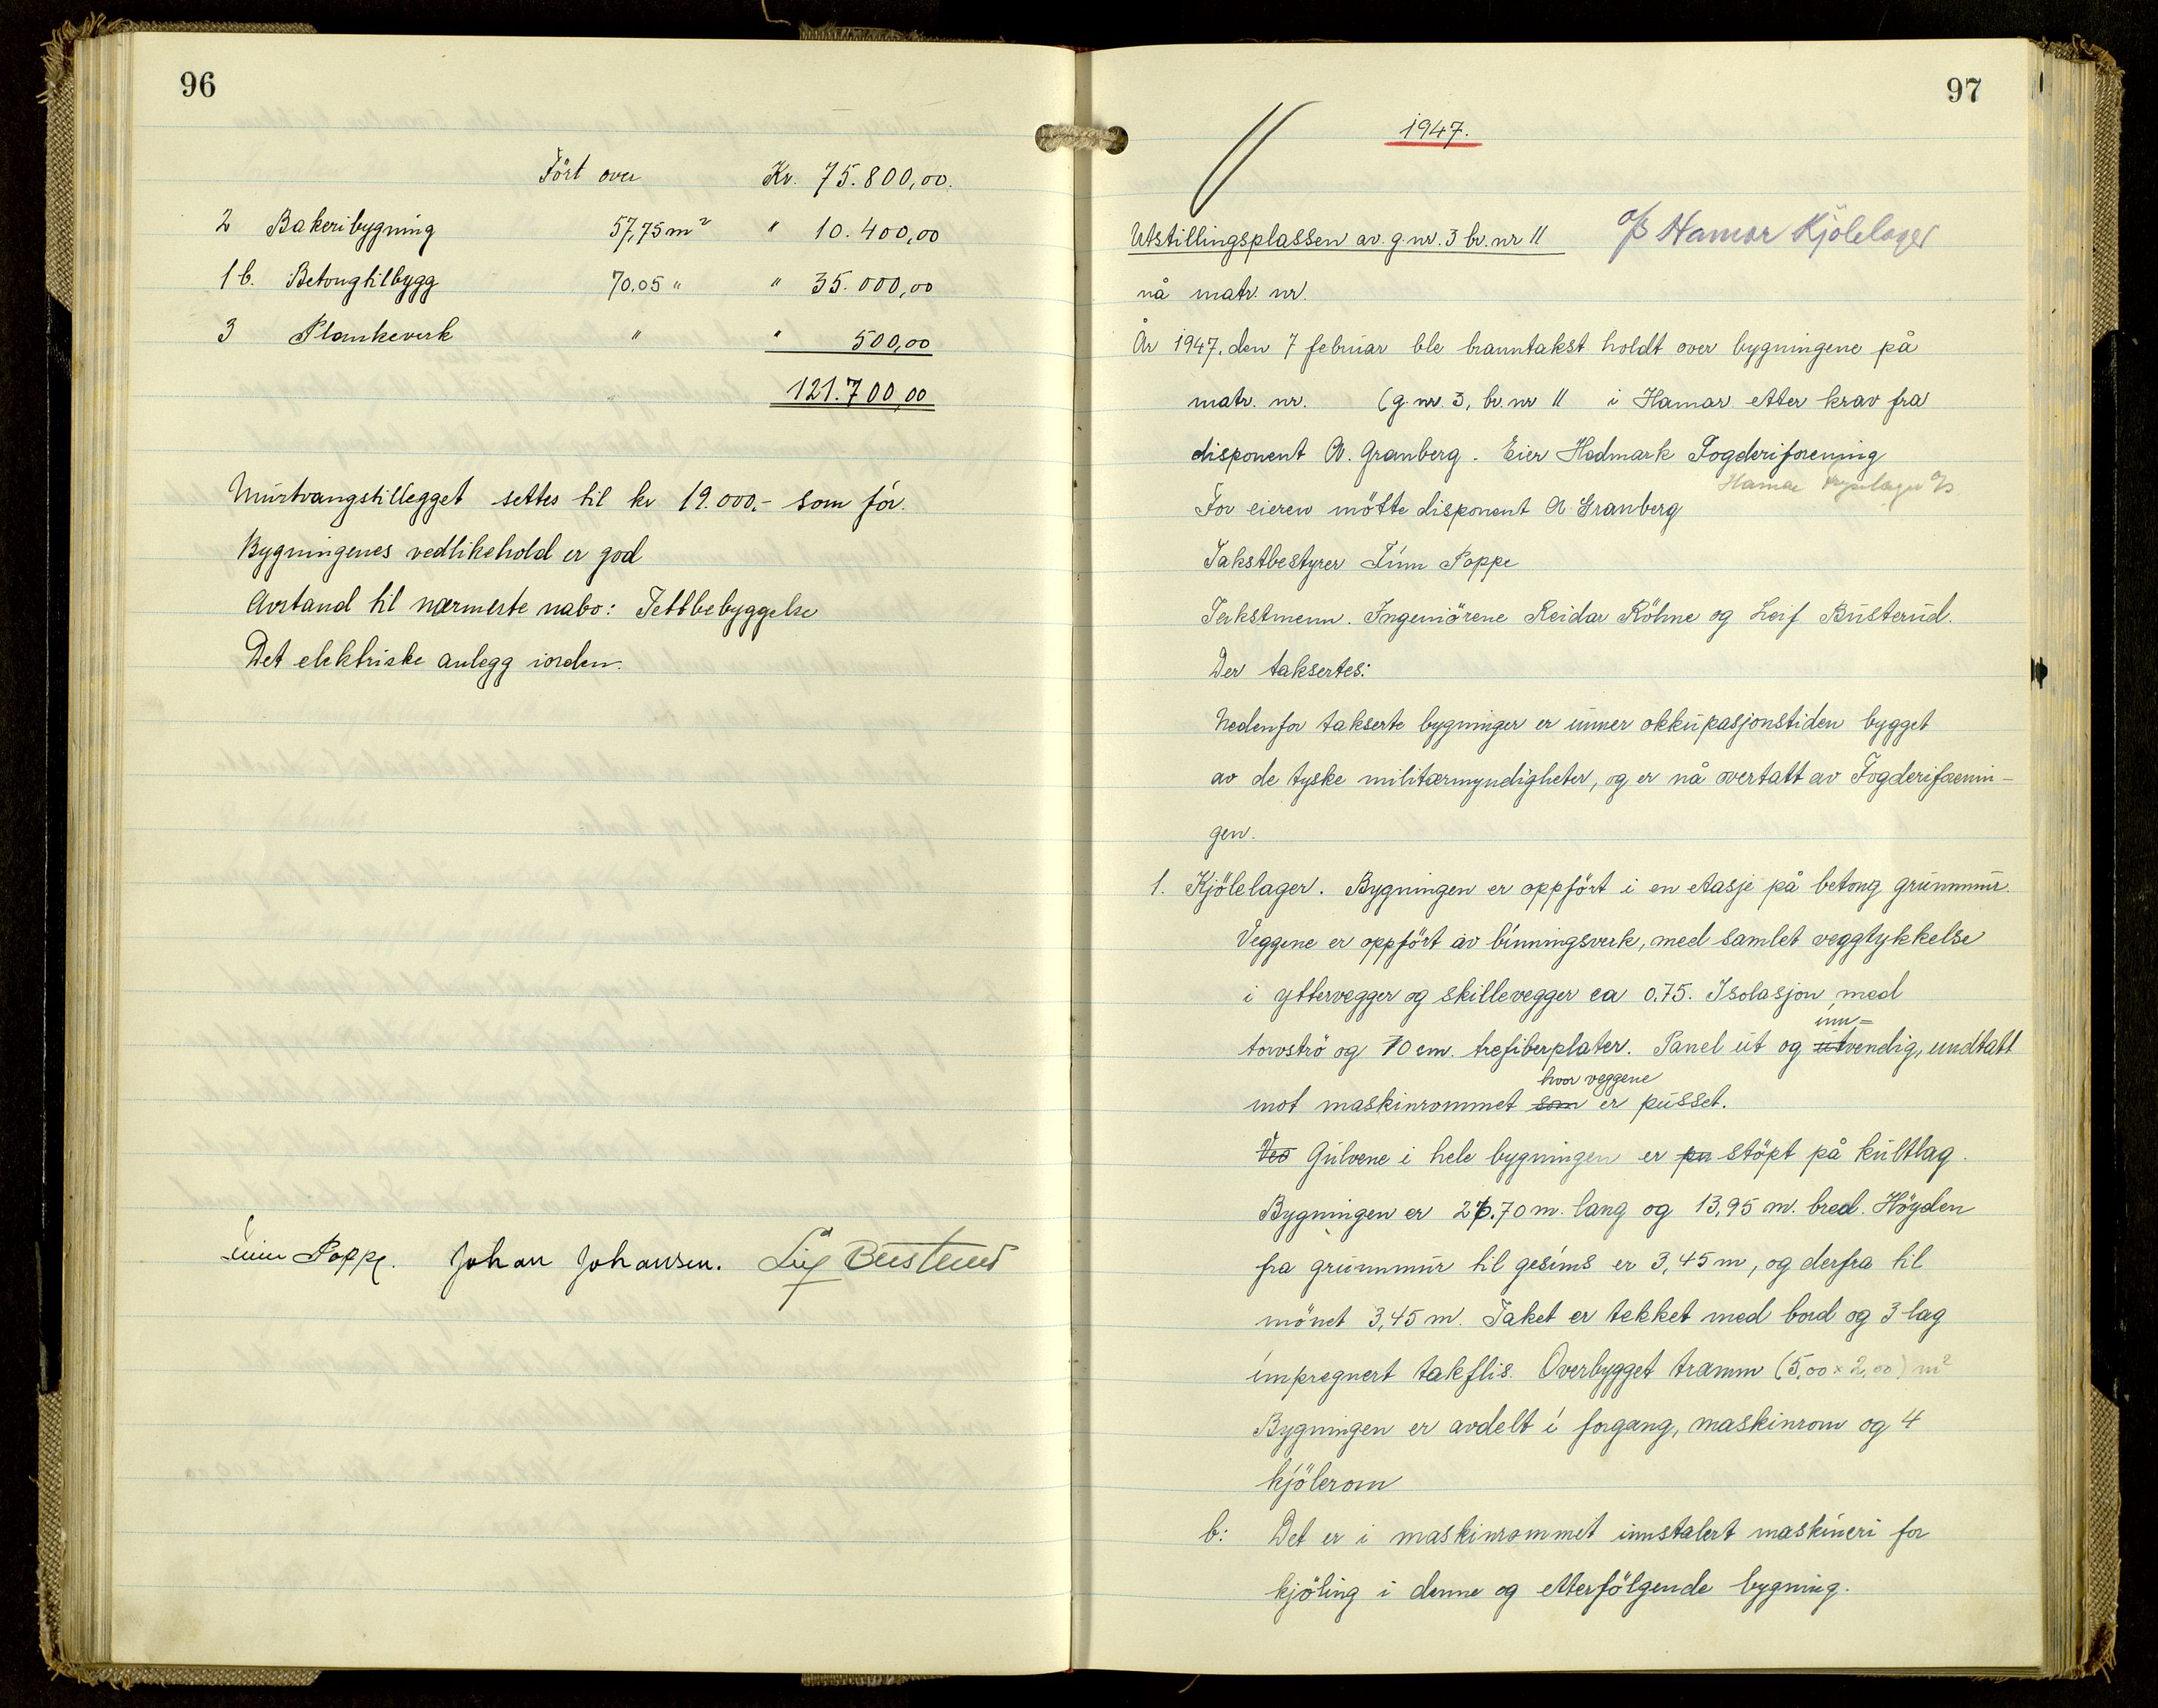 96
Ført over Kr. 75.800,00.
2 Bakeribygning 57,75 m² " 10.400,00
1 b. Betongtilbygg 70.05 " " 35.000,00
3 Plankeverk " " 500,00
121.700,00
Murtvangstillegget settes til kr 19.000.- som för.
Bygningenes vedlikehold er god
Avstand til nærmeste nabo: Tettbebyggelse
Det elektriske anlegg iorden.
Finn Poppe. Johan Johansen. Leif Busterud
97
1947.
Utstillingsplassen av g.nr. 3 br. nr 11 A/S Hamar Kjölelager
nå matr. nr.
År 1947. den 7 februar ble branntakst holdt over bygningene på
matr. nr. (g.nr. 3, br. nr 11 i Hamar etter krav fra
disponent A. Granberg. Eier Hedmark Fogderiforening
Hamar A/S
For eieren mötte disponent A. Granberg
Takstbestyrer Finn Poppe
Takstmenn. Ingeniörene Reidar Röhne og Leif Busterud.
Der taksertes:
Nedenfor takserte bygninger er unner okkupasjonstiden bygget
av de tyske militærmyndigheter, og er nå overtatt av Fogderiforenin-
gen.
1. Kjölelager. Bygningen er oppfört i en etasje på betong grunnmur.
Veggene er oppfört av binningsverk, med samlet veggtykkelse
i yttervegger og skillevegger ca 0.75. Isolasjon med
torvströ og 10 cm. trefiberplater. Panel ut og ut inn=vendig, undtatt
mot maskinrommet som hvor veggene er pusset.
Ved Gulvene i hele bygningen er pu stöpt på kultlag.
Bygningen er 26.70 m. lang og 13,95 m. bred. Höyden
fra grunnmur til gesims er 3,45 m, og derfra til
mönet 3,45 m. Taket er tekket med bord og 3 lag
impregnert takflis. Overbygget tramm (5,00 × 2,00) m²
Bygningen er avdelt i forgang, maskinrom og 4
kjölerom
b: Det er i maskinrommet innstalert maskineri for
kjöling i denne og etterfölgende bygning.